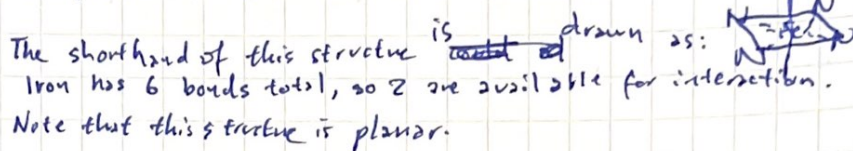 The shorthand of this structue is drawn as: N N N N Fe
Iron has 6 bonds total, so 2 are available for interaction.
Note that this structue is planar.